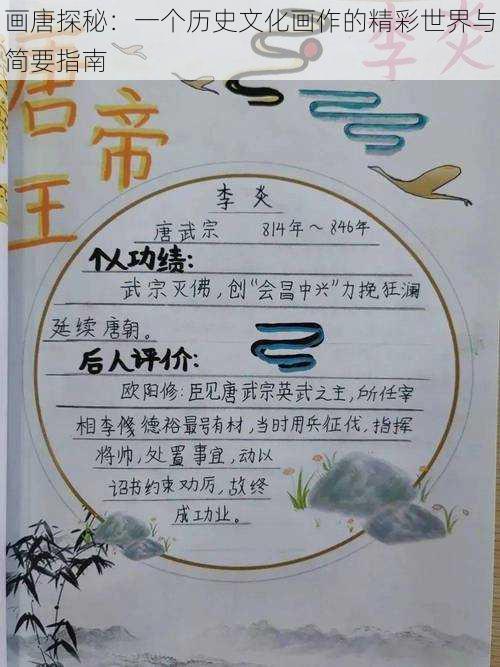 画唐探秘：一个历史文化画作的精彩世界与
简要指南
李炎
唐
帝
王
李炎
唐武宗 814年～846年
个人功绩：
武宗灭佛，创“会昌中兴”力挽狂澜
延续唐朝。
后人评价：
欧阳修：臣见唐武宗英武之主，所任宰
相李德裕最号有材，当时用兵征伐，指挥
将帅，处置事宜，动以
诏书约束劝厉，故终
成功业。